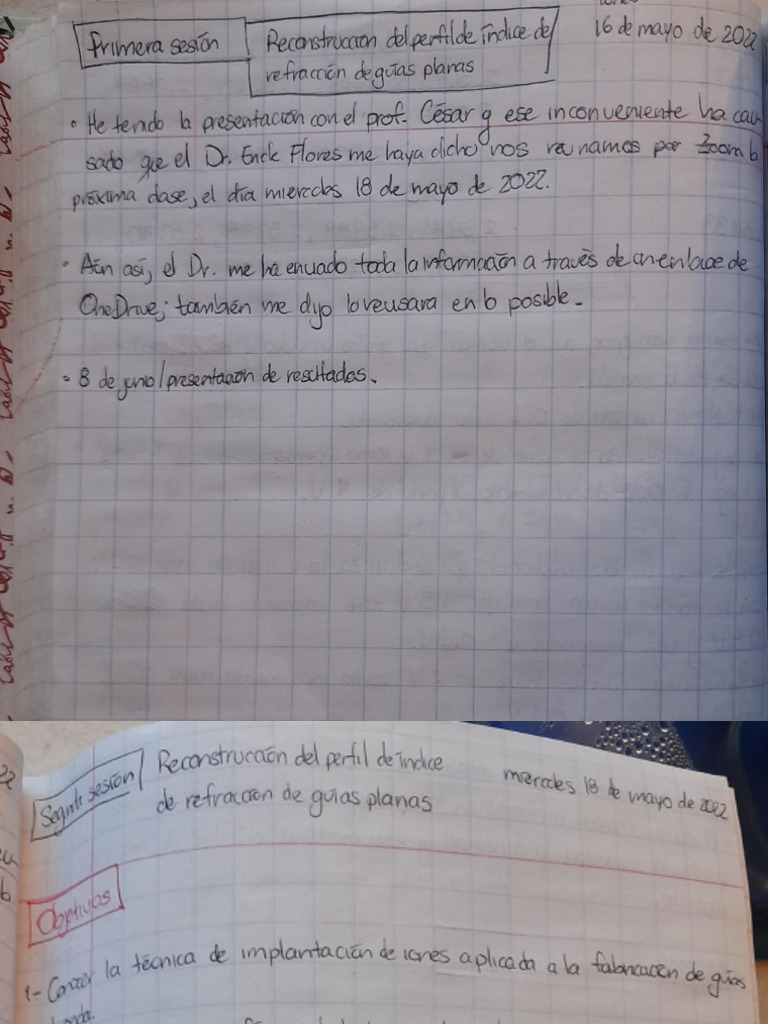 Primera sesión
Reconstrucción del perfil de índice de
refracción de guías planas
16 de mayo de 2022
• He tenido la presentación con el prof. César y ese inconveniente ha cau-
sado que el Dr. Erick Flores me haya dicho nos reunamos por Zoom la
próxima clase, el día miercoles 18 de mayo de 2022.
• Aún así, el Dr. me ha enviado toda la información a través de un enlace de
OneDrive; también me dijo lo revisara en lo posible.
• 8 de junio/presentación de resultados.
Segunda sesión
Reconstrucción del perfil de índice
de refracción de guías planas
miercoles 18 de mayo de 2022
Objetivos
1- Conocer la técnica de implantación de iones aplicada a la fabricación de guías